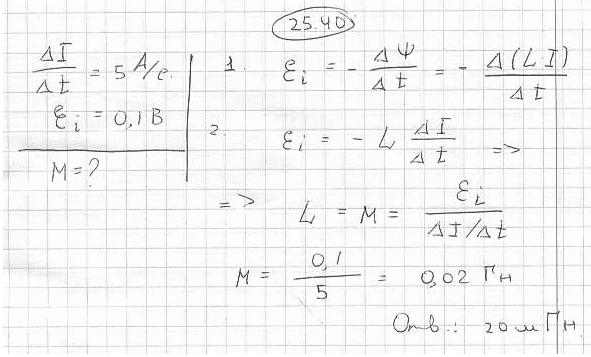 25.40
ΔI/Δt = 5 А/с.
ℰi = 0,1 В
М = ?
1. ℰi = - ΔΨ/Δt = - Δ(L I)/Δt
2. ℰi = - L ΔI/Δt =>
=> L = М = ℰi/(ΔI/Δt)
М = 0,1/5 = 0,02 Гн
Отв.: 20 мГн